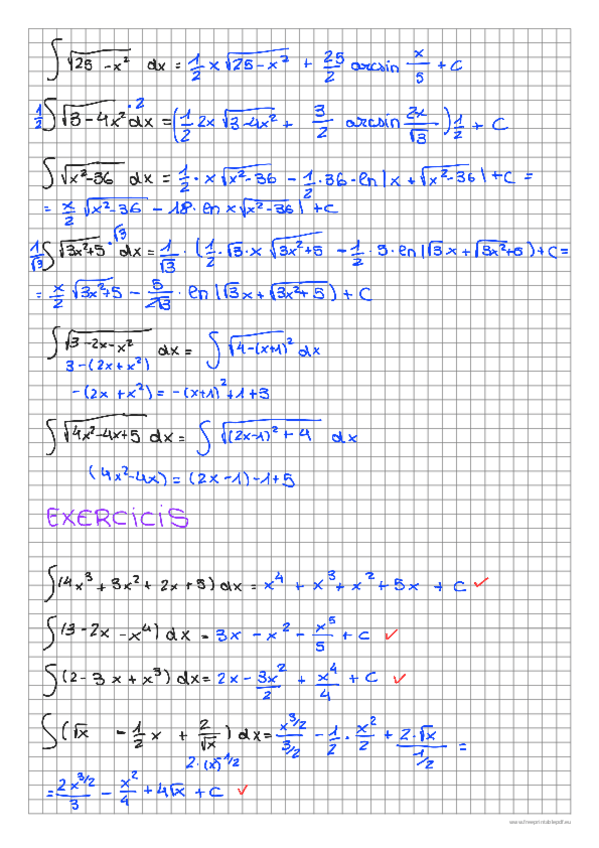 ∫ √(25 - x²) dx = 1/2 x √(25 - x²) + 25/2 arcsin x/5 + C
1/2 ∫ √(3 - 4x²) ·2 dx = (1/2 2x √(3-4x²) + 3/2 arcsin 2x/√3) 1/2 + C
∫ √(x²-36) dx = 1/2 · x √(x²-36) - 1/2 · 36 · ln |x + √(x²-36)| + C =
= x/2 √(x²-36) - 18 · ln x √(x²-36) | + C
1/√3 ∫ √(3x²+5) ·√3 dx = 1/√3 · (1/2 · √3 · x √(3x²+5 - 1/2 · 5 · ln |√3 x + √(3x²+5)) + C =
= x/2 √(3x²+5) - 5/2√3 · ln |√3x + √(3x²+5)) + C
∫ √(3-2x-x²) dx = ∫ √(4-(x+1)²) dx
3-(2x+x²)
-(2x+x²) = -(x+1)²+1+3
∫ √(4x²-4x+5) dx = ∫ √((2x-1)² + 4) dx
(4x²-4x) = (2x-1)-1+5
EXERCICIS
∫ (4x³ + 3x² + 2x + 5) dx = x⁴ + x³ + x² + 5x + C ✓
∫ (3 - 2x - x⁴) dx = 3x - x² - x⁵/5 + C ✓
∫ (2 - 3x + x³) dx = 2x - 3x²/2 + x⁴/4 + C ✓
∫ (√x - 1/2 x + 2/√x) dx = x^3/2 / 3/2 - 1/2 · x²/2 + 2·√x / 1/2 =
2·(x)^-1/2
= 2x^3/2 / 3 - x²/4 + 4√x + C ✓